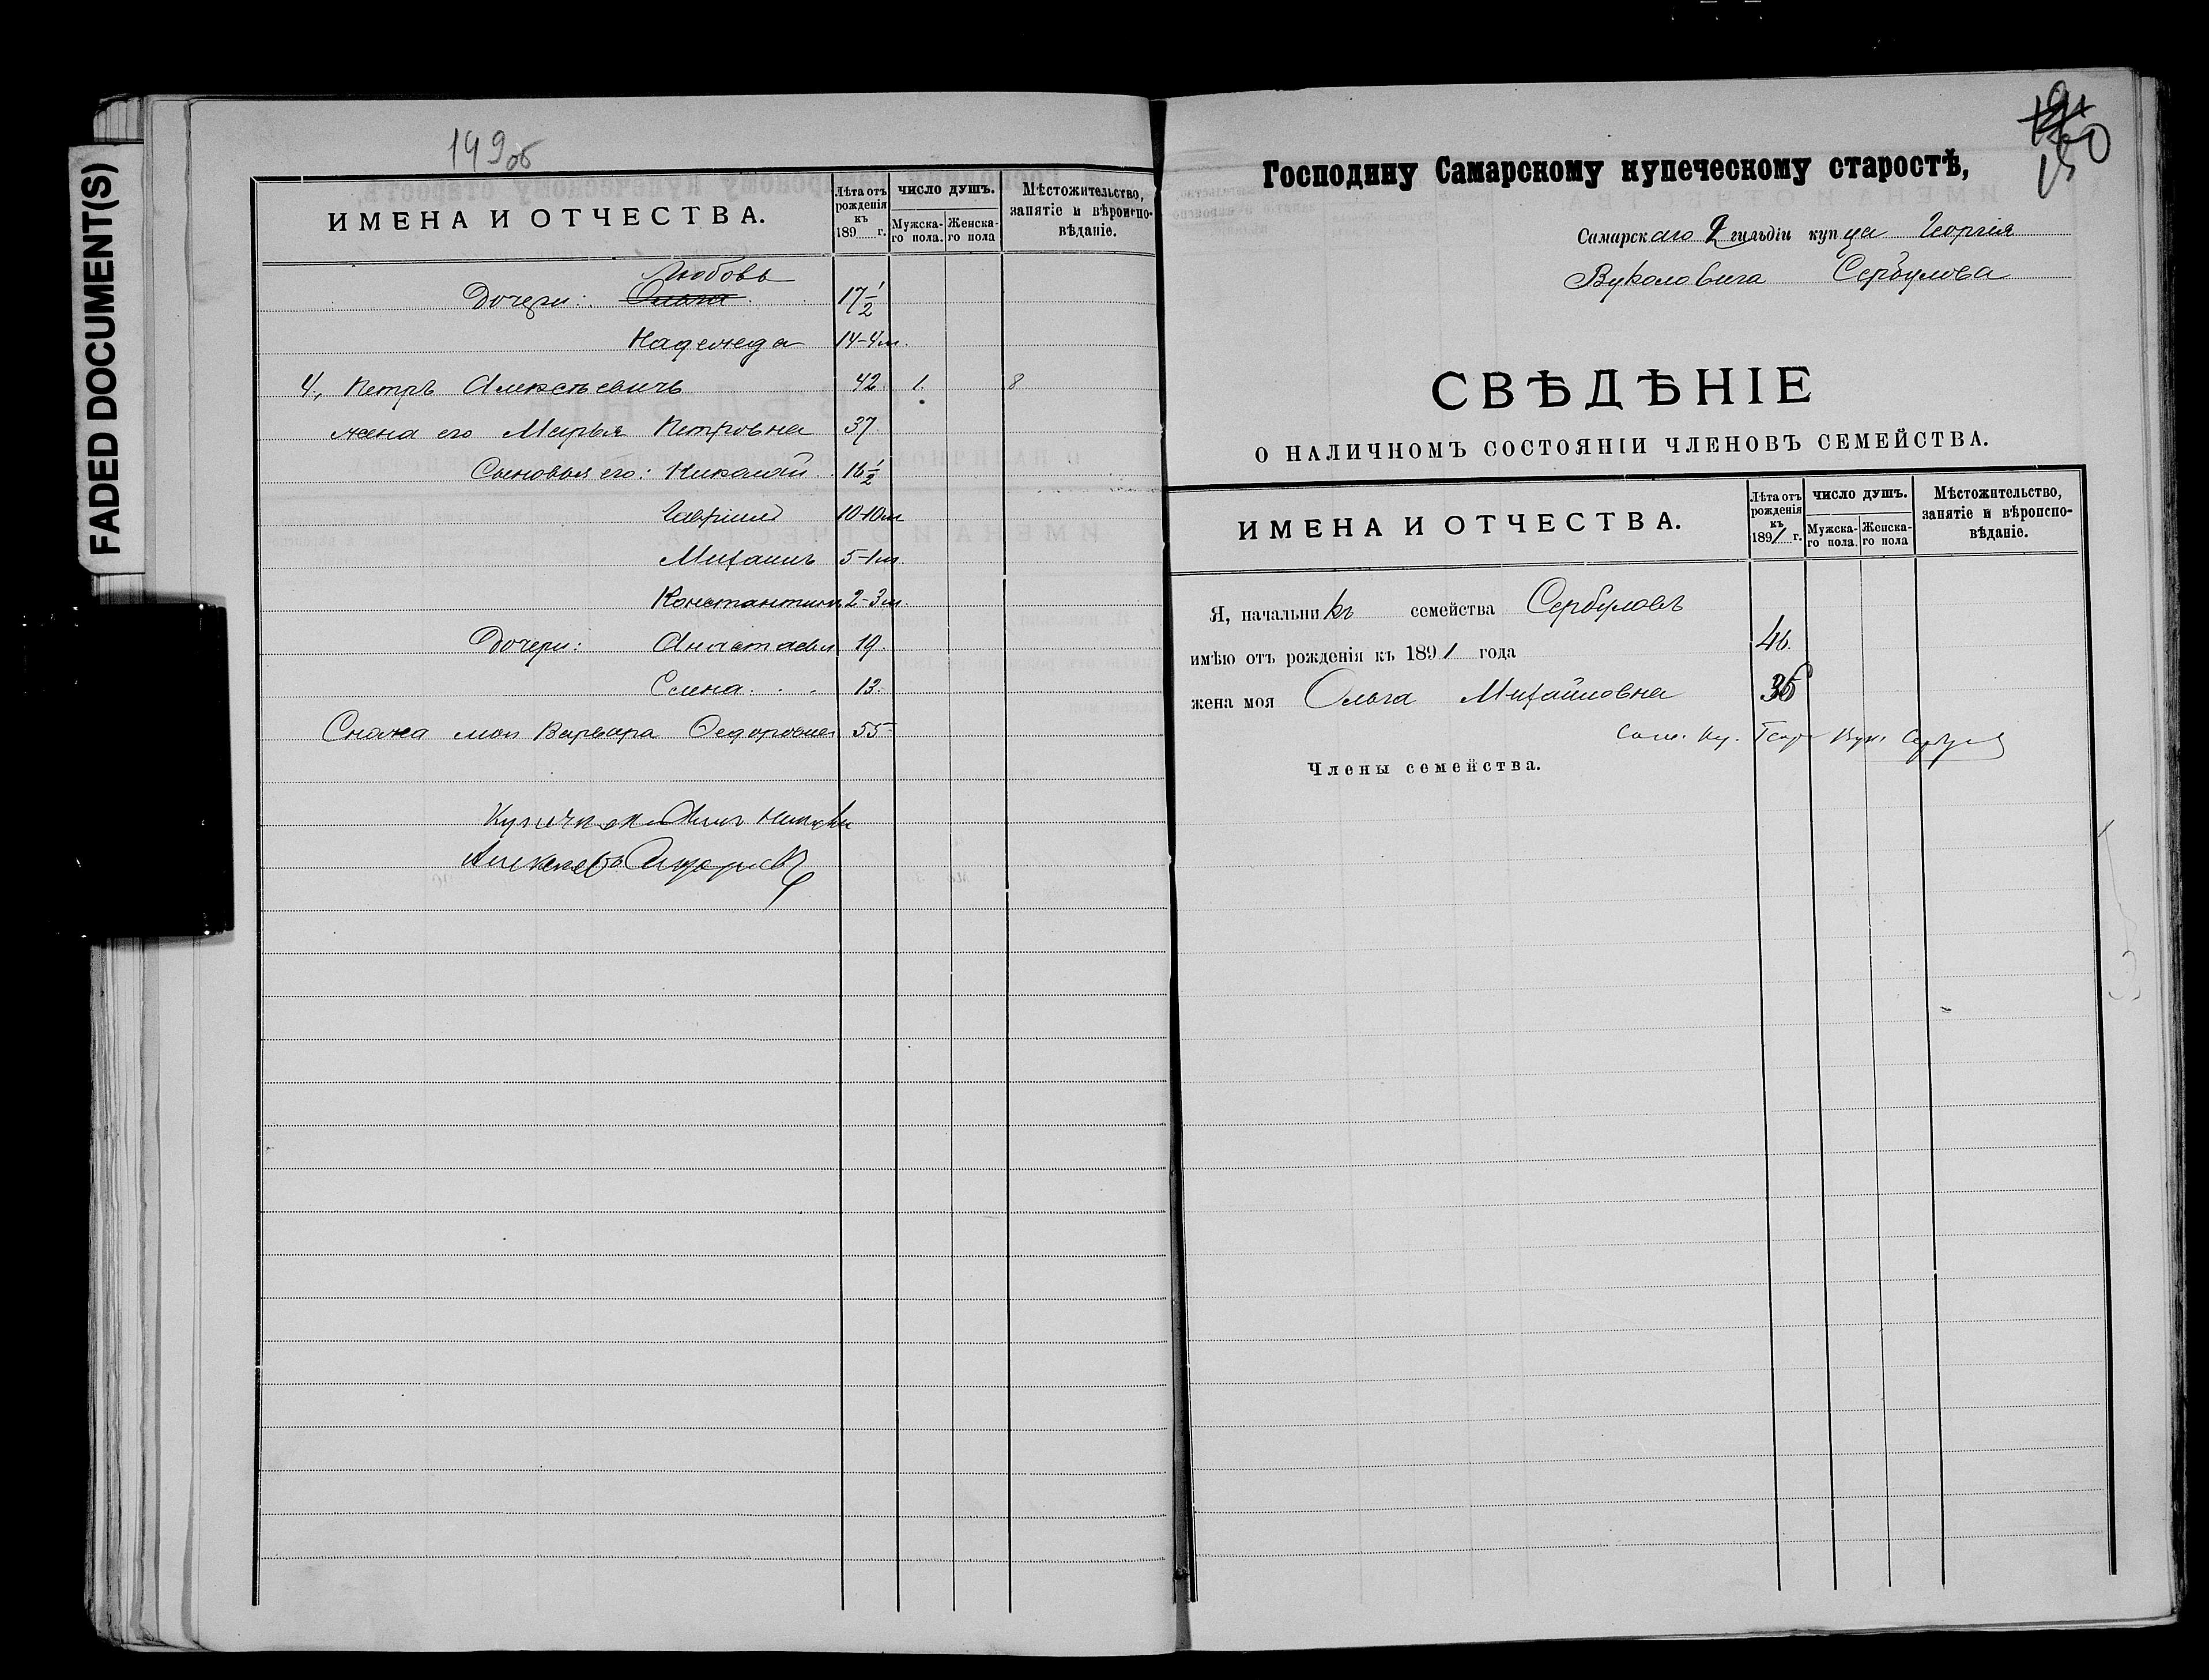 FADED DOCUMENT(S)
149об
ИМЕНА И ОТЧЕСТВА.
Лѣта отъ рожденія къ 189 г.
ЧИСЛО ДУШЪ.
Мужска-го пола.
Женска-го пола
Мѣстожительство, занятіе и вѣроиспо-вѣданіе.
Любовь
Дочери: Ольга 17½
Надежда 14-4м.
4, Петръ Алексѣевичъ 42 1. 8
жена его Марья Петровна 37
Сыновья его: Николай 16½
Гавріилъ 10-10м
Михаилъ 5-1м.
Константинъ 2-3м
Дочери: Анастасья 19.
Елена 13.
Сноха моя Варвара Федоровна 55
150
Господину Самарскому купеческому старостѣ,
Самарскаго 2 гильдіи купца Георгія
Вуколовича Сербулова
СВѢДѢНІЕ
О НАЛИЧНОМЪ СОСТОЯНІИ ЧЛЕНОВЪ СЕМЕЙСТВА.
ИМЕНА И ОТЧЕСТВА.
Лѣта отъ рожденія къ 1891 г.
ЧИСЛО ДУШЪ.
Мужска-го пола.
Женска-го пола
Мѣстожительство, занятіе и вѣроиспо-вѣданіе.
Я, начальникъ семейства Сербуловъ
имѣю отъ рожденія къ 1891 года 46.
жена моя Ольга Михайловна 36
Сам. Ку. Геор Вук. Сербулов
Члены семейства.